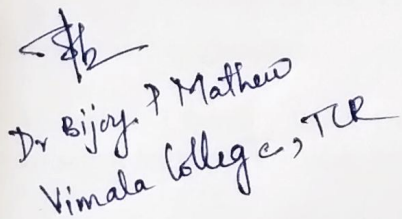 Dr Bijoy. P Mathew
Vimala College, TCR